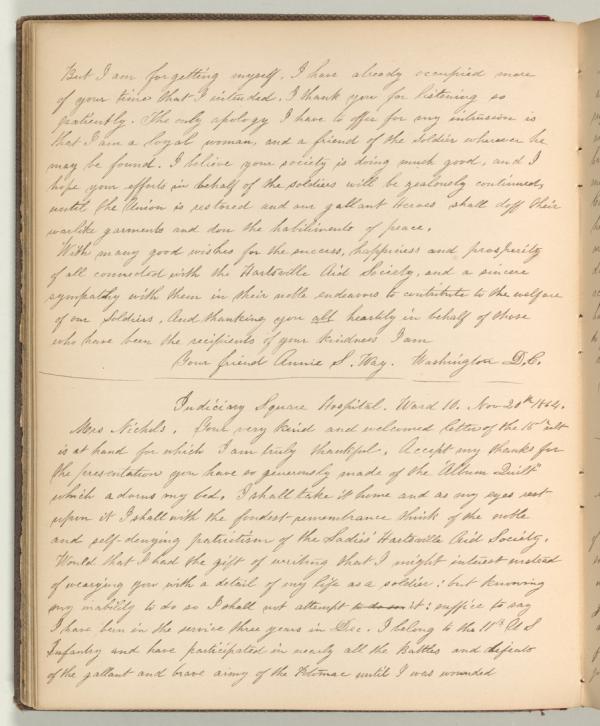 But I am forgetting myself. I have already occupied more
of your time that I intended. I thank you for listening so
patiently. The only apology I have to offer for my intrusion is
that I am a loyal woman, and a friend of the Soldier wherever he
may be found. I believe your society is doing much good, and I
hope your efforts in behalf of the soldiers will be zealously continued,
until the Union is restored and our gallant heroes shall doff their
warlike garments and don the habiliments of peace.
With many good wishes for the success, happiness and prosperity
of all connected with the Hartsville Aid Society, and a sincere
sympathy with them in their noble endeavors to contribute to the welfare
of our Soldiers. And thanking you all heartily in behalf of those
who have been the recipients of your kindness I am
Your friend Annie S. Way. Washington D.C.
Judiciary Square Hospital. Ward 10. Nov 20th 1864.
Mrs Nichols. Your very kind and welcomed letter of the 15" ult
is at hand for which I am truly thankful. Accept my thanks for
the presentation you have so generously made of the "Album Quilt"
which adorns my bed. I shall take it home and as my eyes rest
upon it I shall with the fondest remembrance think of the noble
and self-denying patriotism of the Ladies' Hartsville Aid Society.
Would that I had the gift of writing that I might interest instead
of wearying you with a detail of my life as a soldier: but knowing
my inability to do so I shall not attempt to do so it: suffice to say
I have been in the service three years in Dec. I belong to the 11th U S
Infantry and have participated in nearly all the battles and defeats
of the gallant and brave army of the Potomac until I was wounded